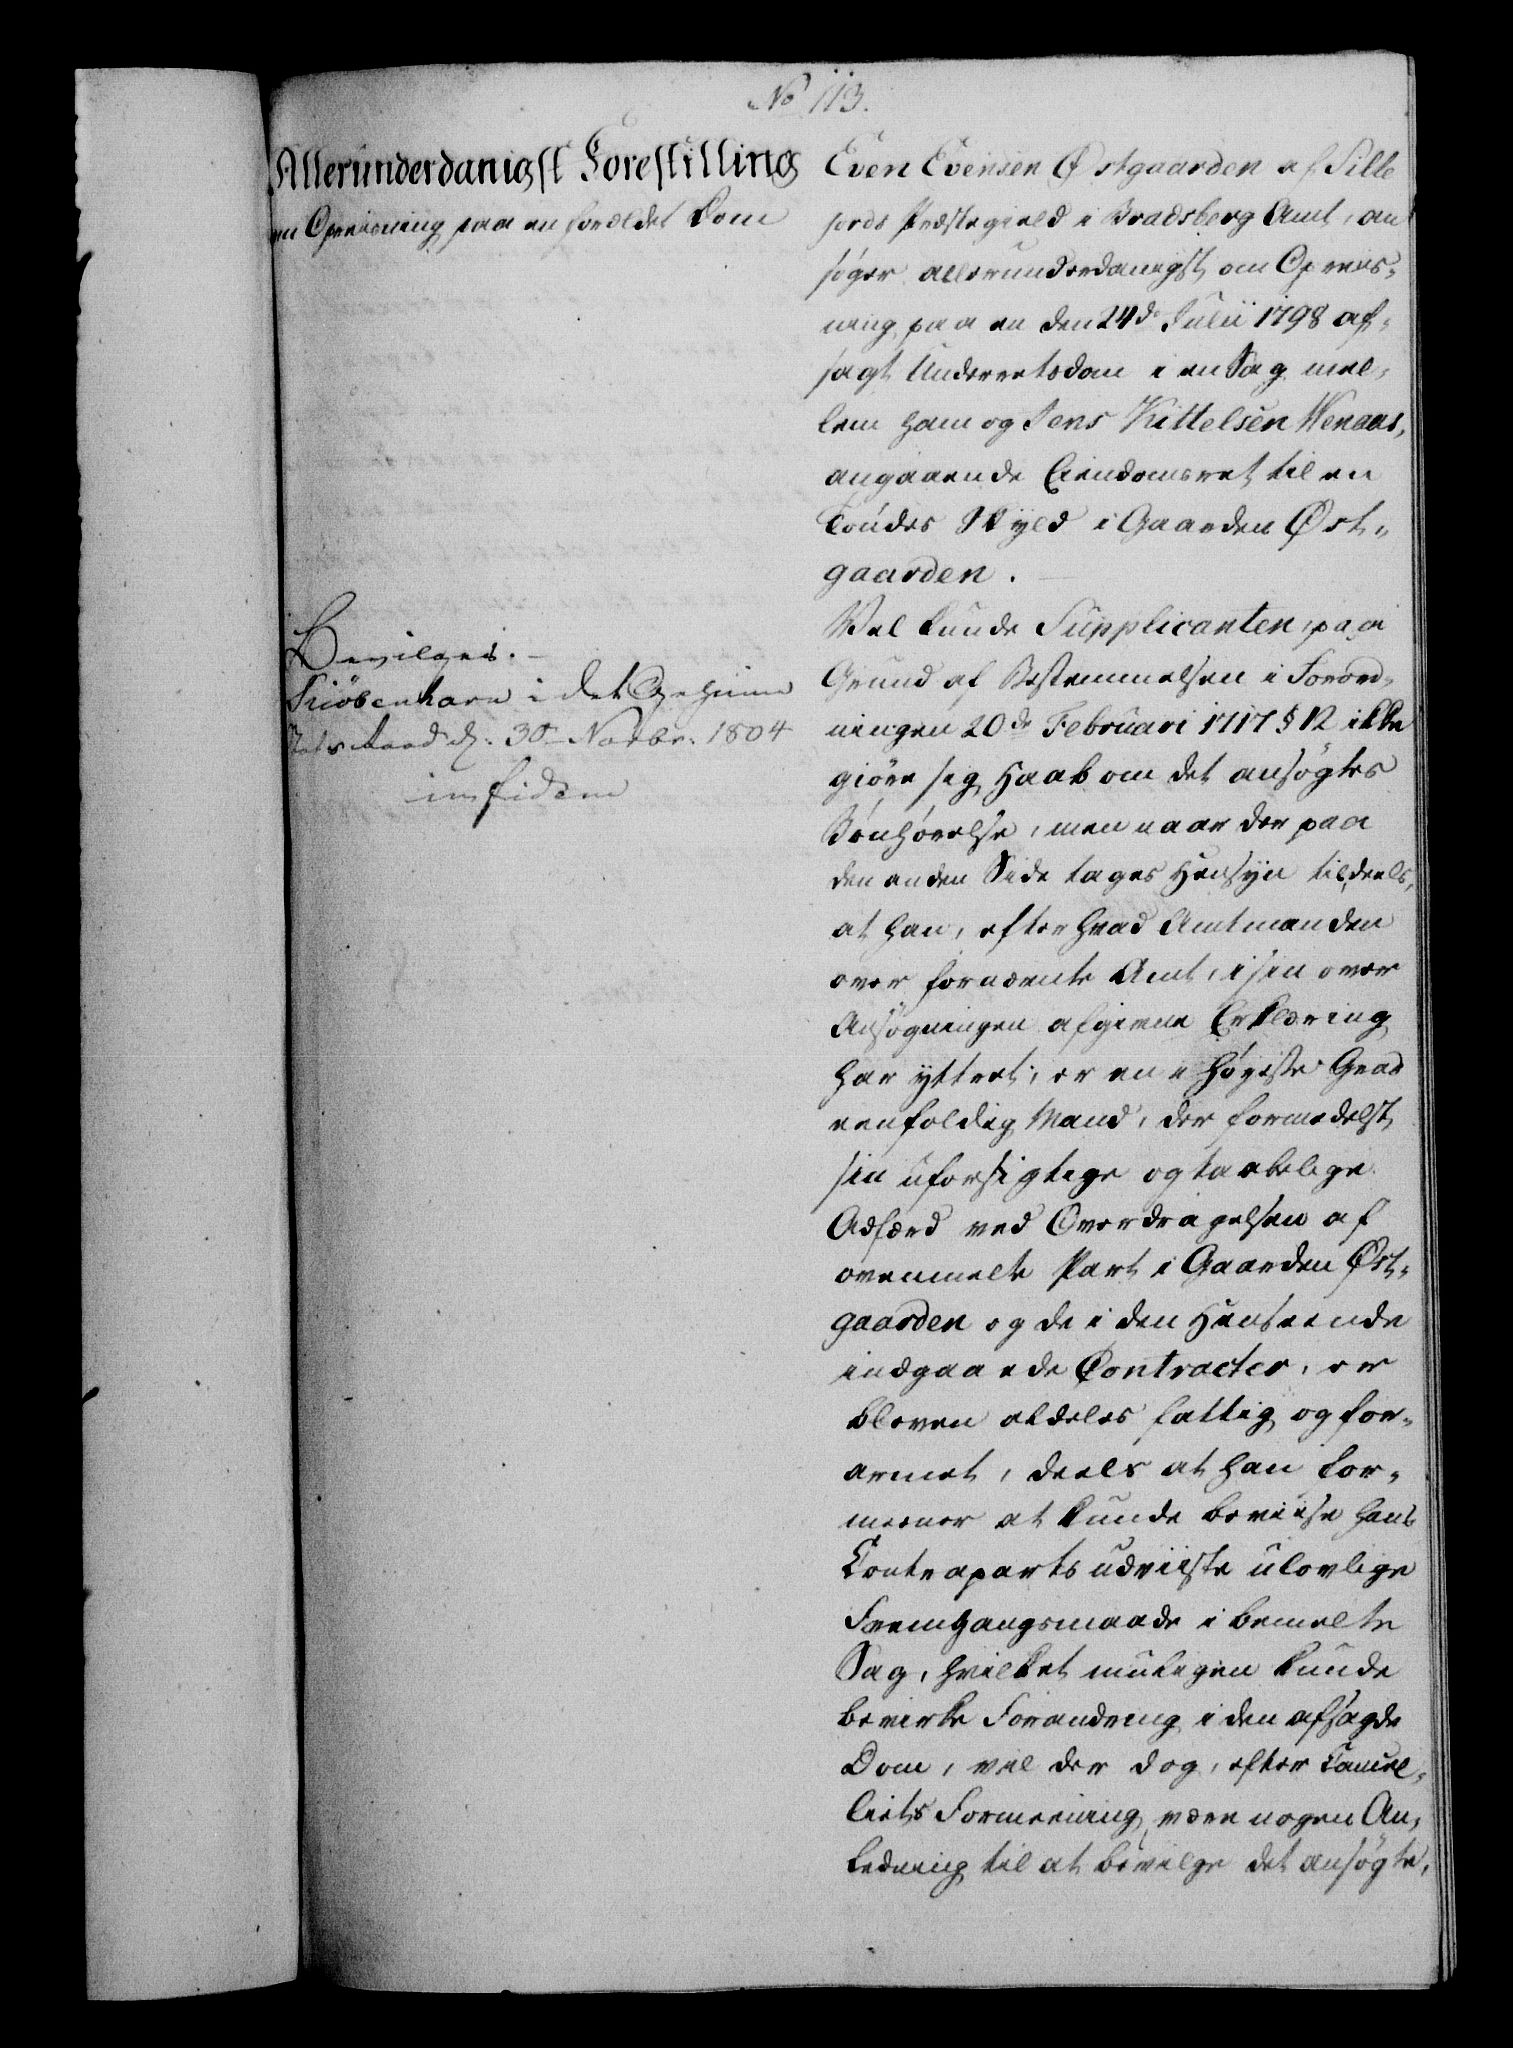 No 113.
Allerunderdanigst Forestilling
om Opreisning paa en forældet Dom
Bevilges.
Kiöbenhavn i det Geheime
Stats Raad d. 30 Novbr. 1804
in fidem
Even Evensen Østgaarden af Sille
jords Præstegield i Bradsberg Amt, an
søger allerunderdanigst om Opreis-
ning paa en den 24de Julii 1798 af-
sagt Underretsdom i en Sag mel-
lem ham og Jens Kittelsen Wenaas,
angaaende Eiendomsret til en
Tøndes Skyld i Gaarden Øst-
gaarden.
Vel kunde Supplicanten, paa
Grund af Bestemmelsen i Forord-
ningen 20de Februari 1717 § 12 ikke
giøre sig Haab om det ansøgtes
Bønhørelse, men naar der paa
den anden Side tages Hensyn til deels,
at han, efter hvad Amtmanden
over fornævnte Amt, i sin over
Ansøgningen afgivne Erklæring
har yttret, er en i høieste Grad
eenfoldig Mand, der formedelst
sin uforsigtige og taabelige
Adfærd ved Overdragelsen af
ovenmelte Part i Gaarden Øst-
gaarden og de i den Henseende
indgaaede Contracter, er
bleven aldeles fattig og for-
armet, deels at han for-
meener at kunde beviise hans
Contraparts udviiste ulovlige
Fremgangsmaade i bemelte
Sag, hvilket muligen kunde
bevirke Forandring i den afsagde
Dom, vil der dog, efter Cancel-
liets Formeening, være nogen An-
ledning til at bevilge det ansøgte,